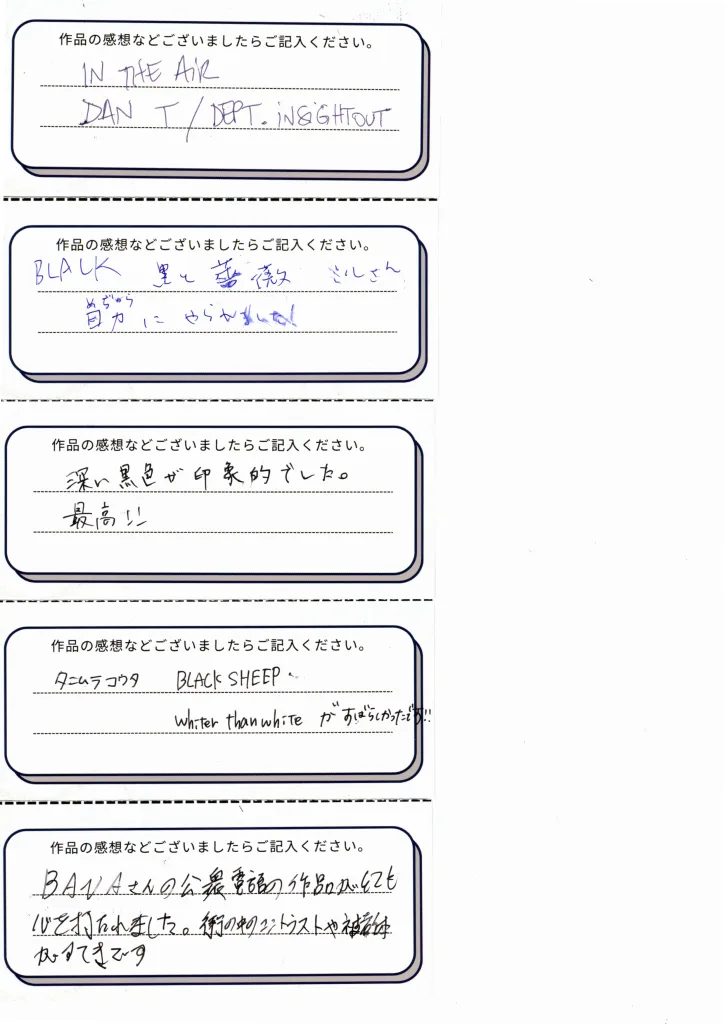 作品の感想などございましたらご記入ください。
IN THE AiR
DAN T / DEPT. iNSiGHTOUT
作品の感想などございましたらご記入ください。
BLACK 黒と薔薇 さん
めぢから
目力に やられました!
作品の感想などございましたらご記入ください。
深い黒色が印象的でした。
最高!!
作品の感想などございましたらご記入ください。
タニムラコウタ BLACK SHEEP
whiter than white がすばらしかったです!!
作品の感想などございましたらご記入ください。
BANAさんの公衆電話の作品がとても
心を打たれました。街の中のコントラストや被写体
がすてきです